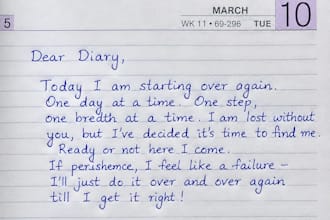 MARCH
5
WK 11 • 69-296 TUE 10
Dear Diary,
Today I am starting over again.
One day at a time. One step,
one breath at a time. I am lost without
you, but I've decided it's time to find me.
Ready or not here I come.
If perishemce, I feel like a failure –
I'll just do it over and over again
till I get it right!